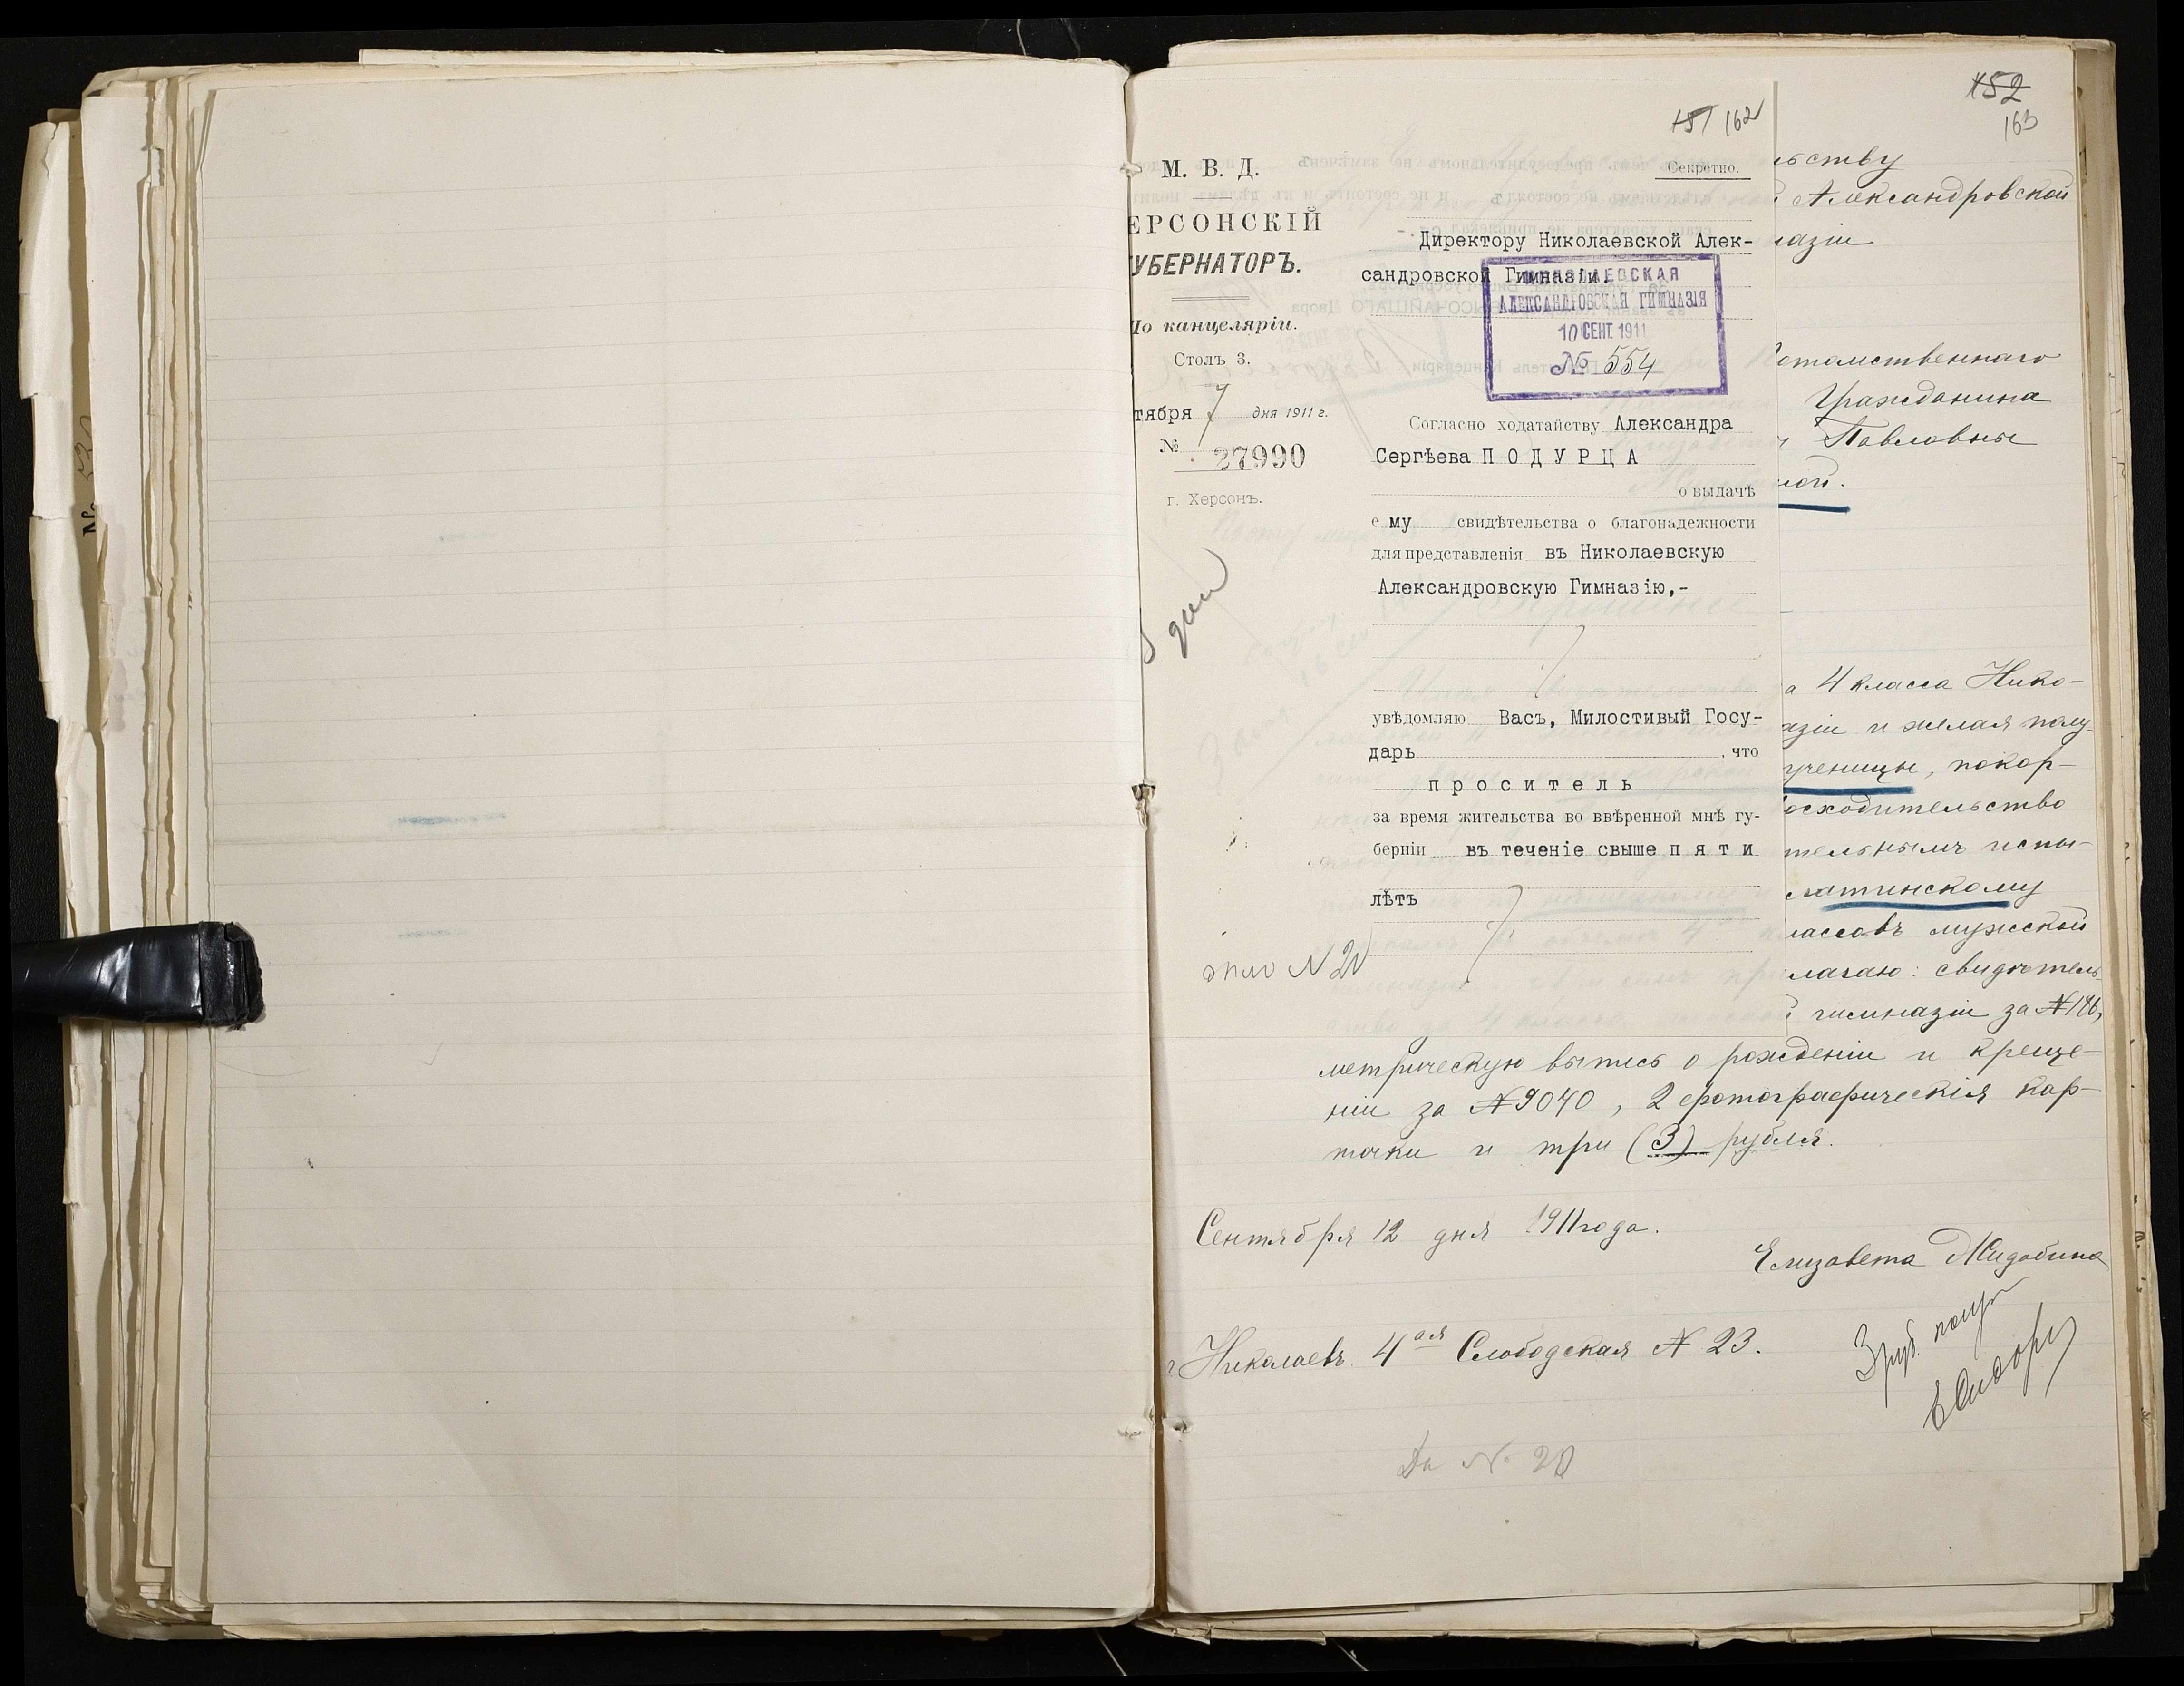 151 162
М. В. Д.
ЕРСОНСКІЙ
УБЕРНАТОРЪ.
По канцеляріи.
Столъ 3.
тября 7 дня 1911 г.
№ 27990
г. Херсонъ.
Секретно.
Директору Николаевской Алек-
сандровской Гимназіи.
НИКОЛАЕВСКАЯ
АЛЕКСАНДРОВСКАЯ ГИМНАЗІЯ
10 СЕНТ. 1911
№ 554
Согласно ходатайству Александра
Сергѣева П О Д У Р Ц А
о выдачѣ
е му свидѣтельства о благонадежности
для представленія въ Николаевскую
Александровскую Гимназію,-
увѣдомляю Васъ, Милостивый Госу-
дарь , что
п р о с и т е л ь
за время жительства во ввѣренной мнѣ гу-
берніи въ теченіе свыше п я т и
лѣтъ
152
163
ьству
й Александровской
назіи
Потомственнаго
Гражданина
Павловны
ной.
а 4 класса Нико-
азіи и желая полу-
ученицы, покор-
осходительство
тельнымъ испы-
латинскому
лассовъ мужской
лагаю: свидѣтель-
й гимназіи за № 186,
метрическую выпись о рожденіи и креще-
ніи за № 9040, 2 фотографическія кар-
точки и три (3) рубля.
Сентября 12 дня 1911 года.
Елизавета Жидобина
г Николаевъ 4ая Слободская № 23.
3 руб. получ
№ 20